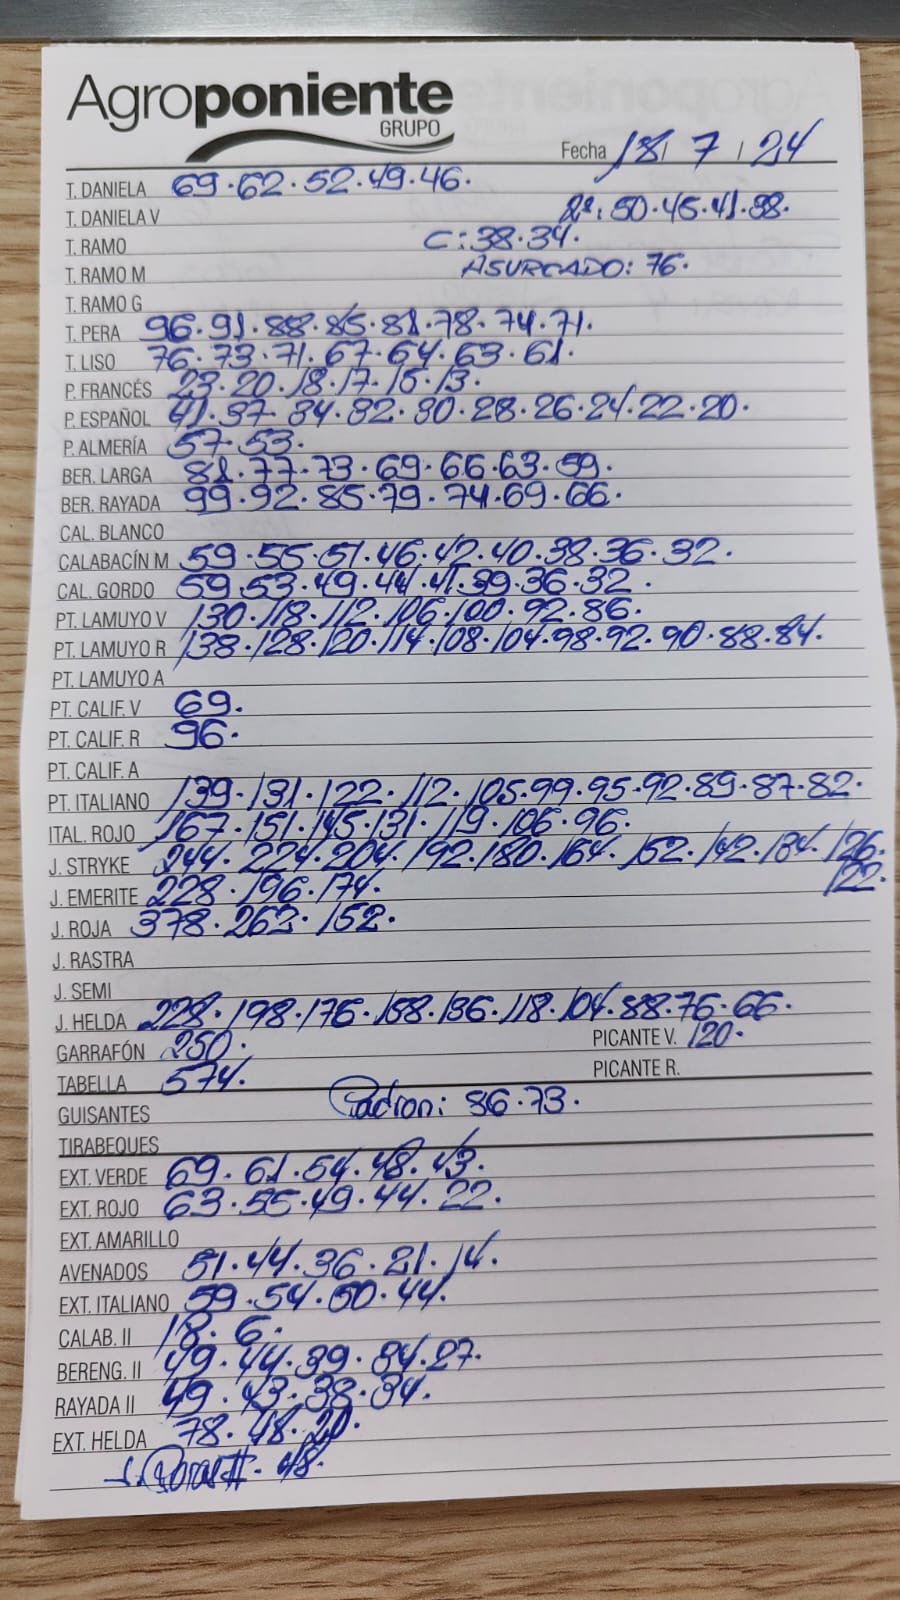 Agroponiente
GRUPO
Fecha 18 / 7 / 24
T. DANIELA 69·62·52·49·46.
T. DANIELA V 2ª: 50·45·41·38.
T. RAMO C: 38·34.
T. RAMO M ASURCADO: 76.
T. RAMO G
T. PERA 96·91·88·85·81·78·74·71.
T. LISO 76·73·71·67·64·63·61.
P. FRANCÉS 23·20·18·17·15·13.
P. ESPAÑOL 41·37·34·32·30·28·26·24·22·20.
P. ALMERÍA 57·53.
BER. LARGA 81·77·73·69·66·63·59.
BER. RAYADA 99·92·85·79·74·69·66.
CAL. BLANCO
CALABACÍN M 59·55·51·46·42·40·38·36·32.
CAL. GORDO 59·53·49·44·41·39·36·32.
PT. LAMUYO V 130·118·112·106·100·92·86.
PT. LAMUYO R 138·128·120·114·108·104·98·92·90·88·84.
PT. LAMUYO A
PT. CALIF. V 69.
PT. CALIF. R 96.
PT. CALIF. A
PT. ITALIANO 139·131·122·112·105·99·95·92·89·87·82.
ITAL. ROJO 167·151·145·131·119·106·96.
J. STRYKE 244·224·204·192·180·164·152·142·134·126.
J. EMERITE 228·196·174. 122.
J. ROJA 378·262·152.
J. RASTRA
J. SEMI
J. HELDA 228·198·176·158·136·118·104·88·76·66.
GARRAFÓN 250. PICANTE V. 120.
TABELLA 574. PICANTE R.
GUISANTES Padron: 86·73.
TIRABEQUES
EXT. VERDE 69·61·54·48·43.
EXT. ROJO 63·55·49·44·22.
EXT. AMARILLO
AVENADOS 51·44·36·21·14.
EXT. ITALIANO 59·54·50·44.
CALAB. II 18·6.
BERENG. II 49·44·39·34·27.
RAYADA II 49·43·38·34.
EXT. HELDA 78·48·20.
48.